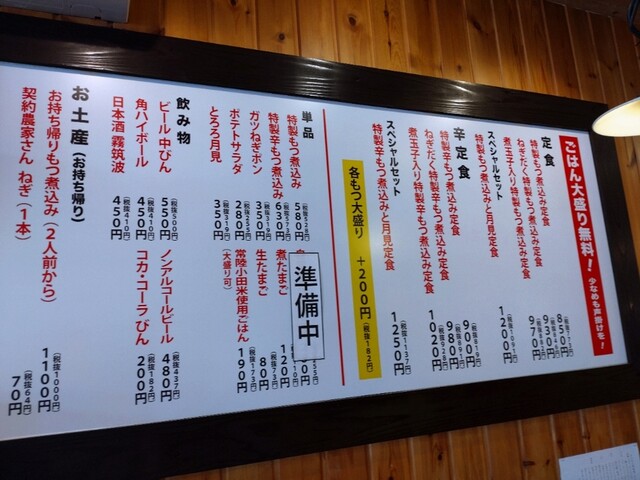 ごはん大盛り無料！ 少なめも声掛けを！
定食
特製もつ煮込み定食 850円(税抜773円)
ねぎだく特製もつ煮込み定食 930円
煮玉子入り特製もつ煮込み定食 970円
スペシャルセット
特製もつ煮込みと月見定食 1200円(税抜1091円)
辛定食
特製辛もつ煮込み定食 900円(税抜819円)
ねぎだく特製辛もつ煮込み定食 980円(税抜891円)
煮玉子入り特製辛もつ煮込み定食 1020円(税抜928円)
スペシャルセット
特製辛もつ煮込みと月見定食 1250円(税抜1137円)
各もつ大盛り ＋200円(税抜182円)
単品
特製もつ煮込み 580円
特製辛もつ煮込み 630円(税抜573円)
ガツねぎポン 350円(税抜319円)
ポテトサラダ 280円(税抜255円)
とろろ月見 350円(税抜319円)
準備中
煮たまご 120円
生たまご 80円(税抜73円)
常陸小田米使用ごはん (大盛り可) 190円(税抜173円)
飲み物
ビール 中びん 550円(税抜500円)
角ハイボール 450円(税抜410円)
日本酒 霧筑波 450円(税抜410円)
ノンアルコールビール 480円(税抜437円)
コカ・コーラ びん 200円(税抜182円)
お土産(お持ち帰り)
お持ち帰りもつ煮込み(2人前から) 1100円(税抜1000円)
契約農家さん ねぎ(1本) 70円(税抜64円)